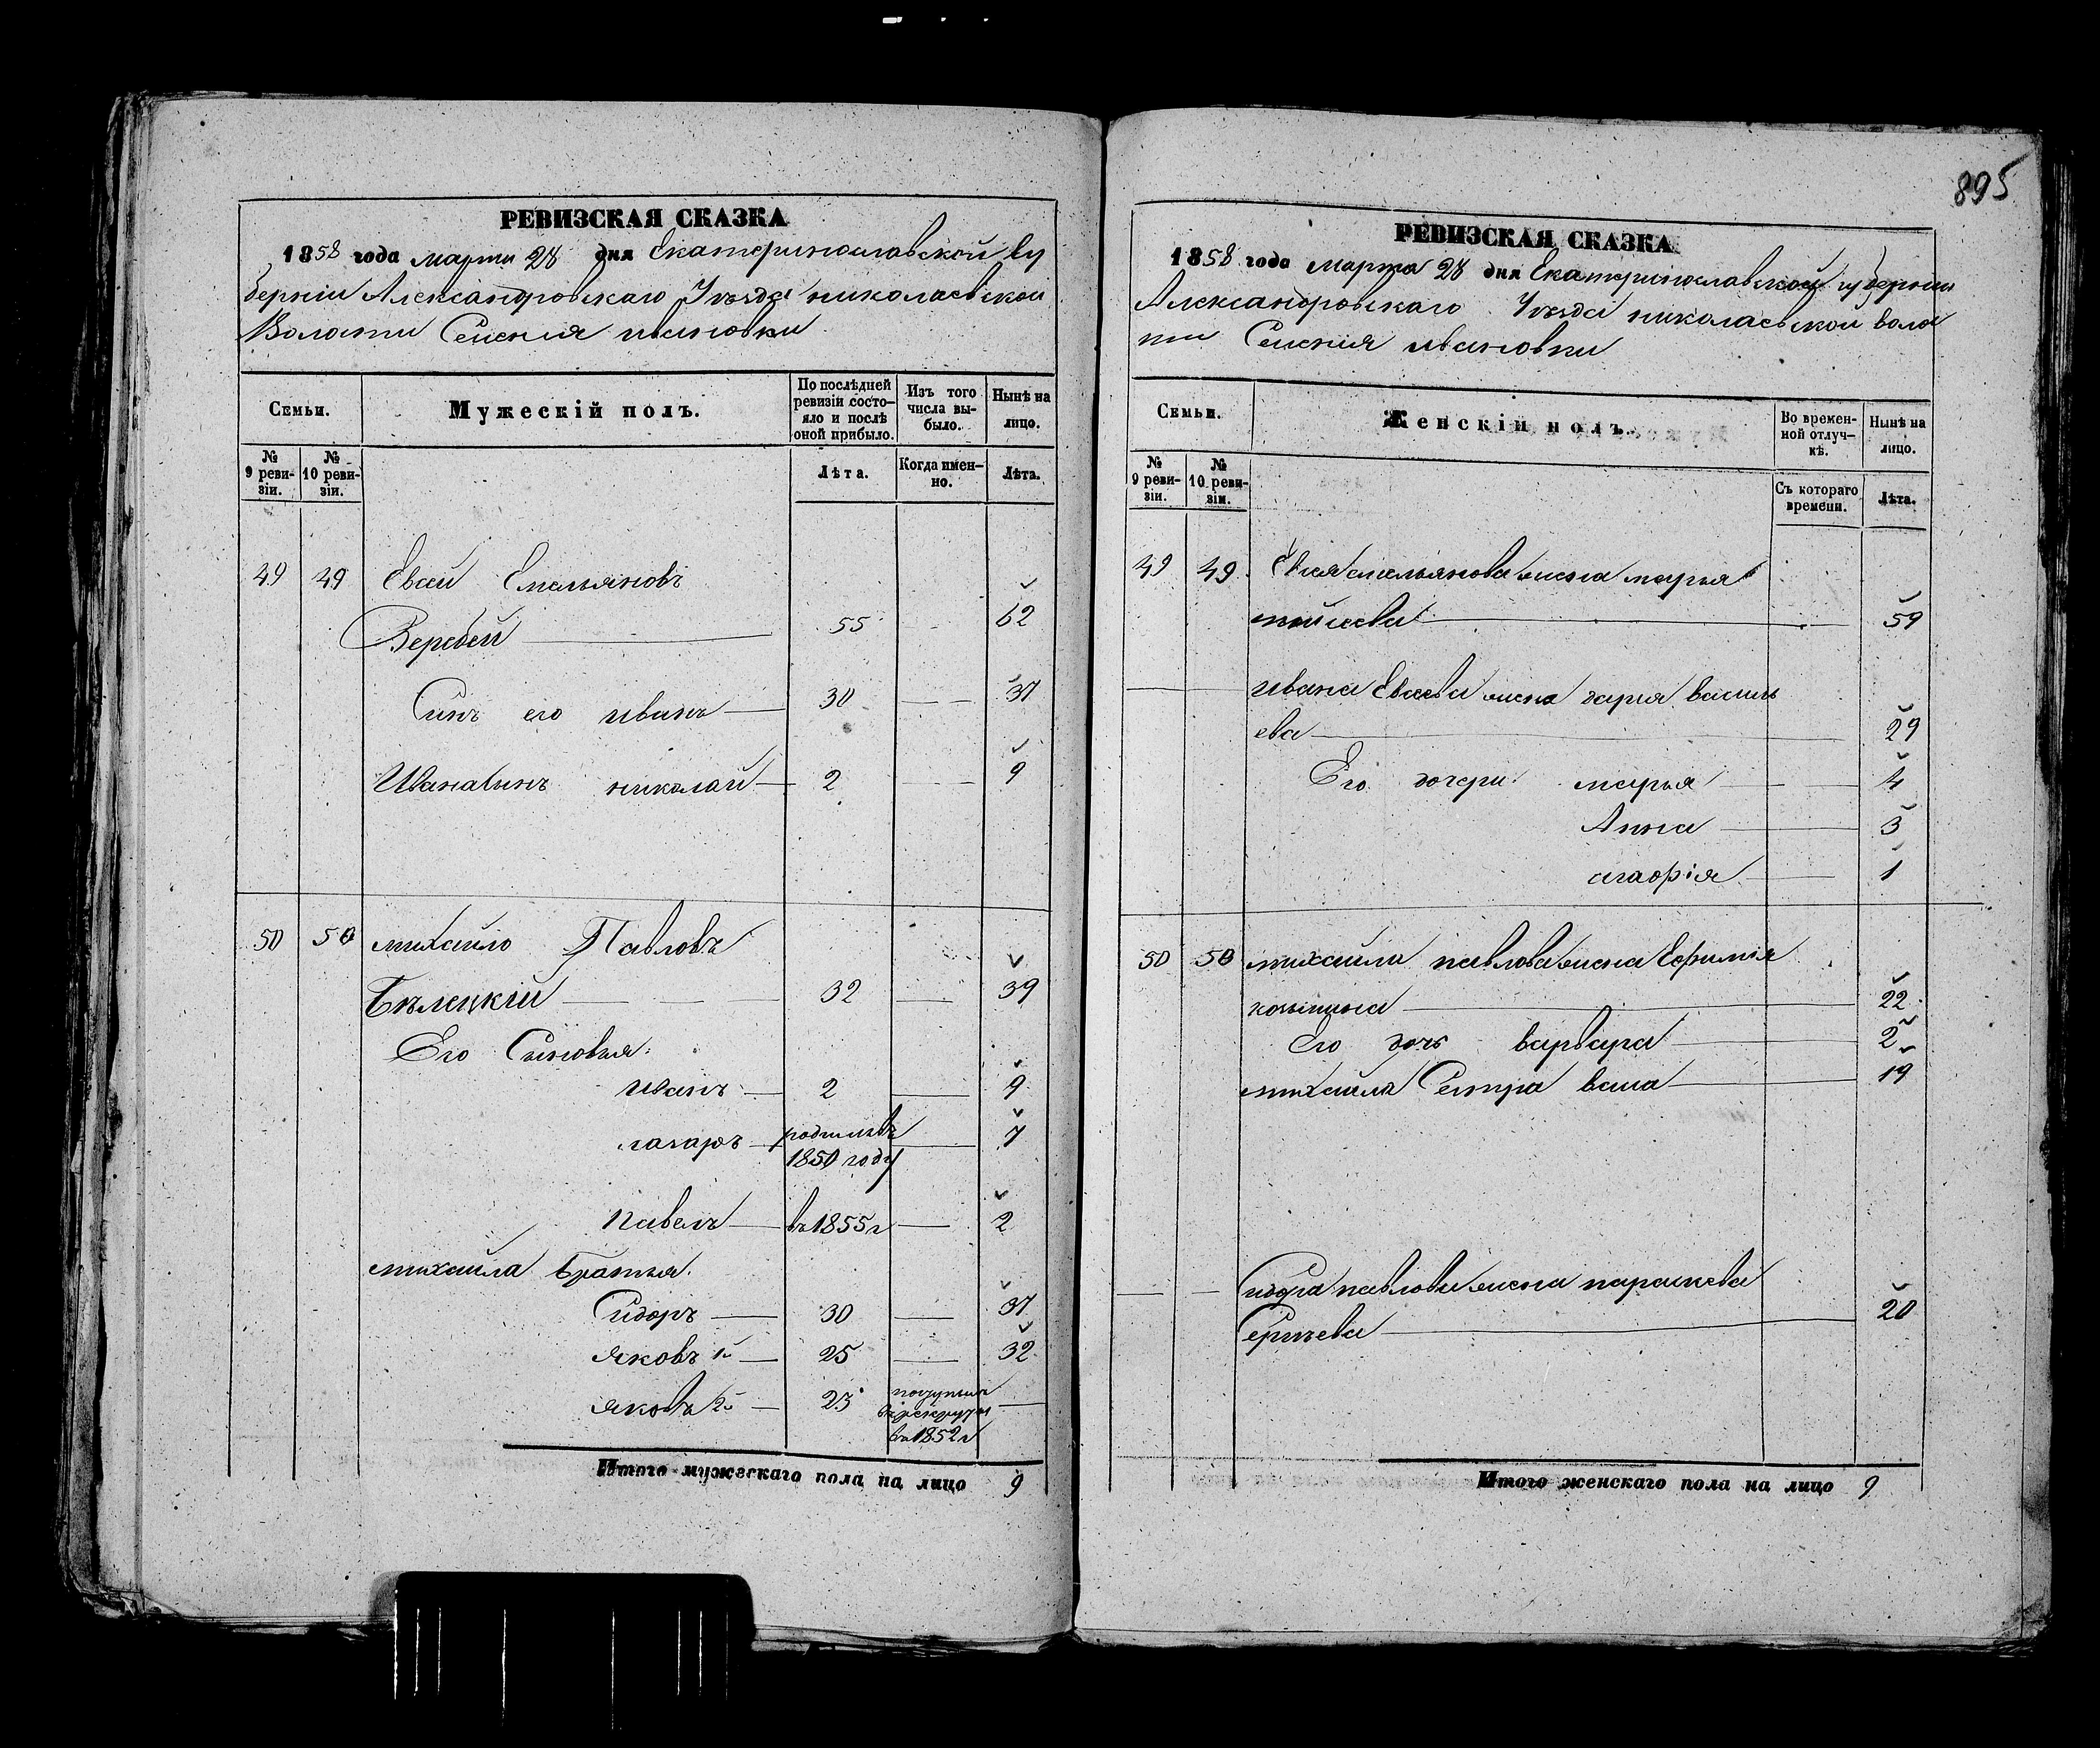 РЕВИЗСКАЯ СКАЗКА
1858 года марта 28 дня Екатеринославской гу
берніи Александровскаго Уѣзда николаевской
Волости Селенія ивановки
Семьи.
Мужескій полъ.
По послѣдней ревизіи состо-яло и послѣ оной прибыло.
Изъ того числа вы-было.
Нынѣ на лицо.
№ 9 реви-зіи.
№ 10 реви-зіи.
Лѣта.
Когда имен-но.
Лѣта.
49 49 Евсѣй Емельяновъ
55 62
Сынъ его иванъ 30 37
Ивана сынъ николай 2 9
50 50 михайло Павловъ
Бѣлецкій 32 39
Его Сыновья:
иванъ 2 9
лазарь родился въ 1850 году 7
павелъ въ 1855 г 2
михайла братья.
Сидоръ 30 37
яковъ 1й 25 32
яковъ 2й 23 поступилъ въ рекруты въ 1852 г
Итого мужескаго пола на лицо 9
895
РЕВИЗСКАЯ СКАЗКА
1858 года марта 28 дня Екатеринославской губерніи
Александровскаго Уѣзда николаевской воло
сти Селенія ивановки
Семьи.
Женскій полъ.
Во времен-ной отлуч-кѣ.
Нынѣ на лицо.
№ 9 реви-зіи.
№ 10 реви-зіи.
Съ котораго времени.
Лѣта.
49 49 емельянова жена марья
59
ивана жена дарья василь
ева 29
Его дочери марья 4
Анна 3
агафія 1
50 50 михайла павлова жена Ефимія
22
Его дочь варвара 2
михайла Сестра 19
Сидора павлова жена параскева
Сергѣева 20
Итого женскаго пола на лицо 9